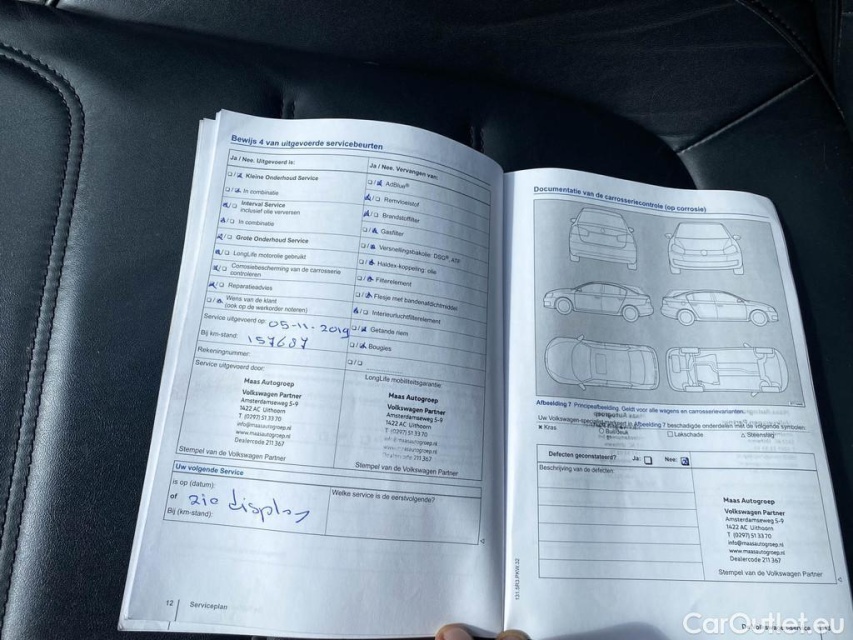 Bewijs 4 van uitgevoerde servicebeurten
Ja / Nee. Uitgevoerd is:
Kleine Onderhoud Service
In combinatie
Interval Service
inclusief olie verversen
In combinatie
Grote Onderhoud Service
LongLife motorolie gebruikt
Corrosiebescherming van de carrosserie
controleren
Reparatieadvies
Wens van de klant
(ook op de werkorder noteren)
Service uitgevoerd op: 05-11-2019
Bij km-stand: 157687
Rekeningnummer:
Service uitgevoerd door:
Maas Autogroep
Volkswagen Partner
Amsterdamseweg 5-9
1422 AC Uithoorn
T (0297) 51 33 70
info@maasautogroep.nl
www.maasautogroep.nl
Dealercode 211 367
Stempel van de Volkswagen Partner
Ja / Nee. Vervangen van:
AdBlue®
Remvloeistof
Brandstoffilter
Gasfilter
Versnellingsbakolie: DSG®, ATF
Haldex-koppeling: olie
Filterelement
Flesje met bandenafdichtmiddel
Interieurluchtfilterelement
Getande riem
Bougies
LongLife mobiliteitsgarantie:
Maas Autogroep
Volkswagen Partner
Amsterdamseweg 5-9
1422 AC Uithoorn
T (0297) 51 33 70
Dealercode 211 367
Stempel van de Volkswagen Partner
Uw volgende Service
is op (datum):
of zie display
Bij (km-stand):
Welke service is de eerstvolgende?
12 Serviceplan
Documentatie van de carrosseriecontrole (op corrosie)
Afbeelding 7 Principeafbeelding. Geldt voor alle wagens en carrosserievarianten.
Afbeelding 7 beschadigde onderdelen met de volgende symbolen:
× Kras
○ Buil/deuk
□ Lakschade
△ Steenslag
Defecten geconstateerd? Ja: Nee:
Beschrijving van de defecten:
Maas Autogroep
Volkswagen Partner
Amsterdamseweg 5-9
1422 AC Uithoorn
T (0297) 51 33 70
info@maasautogroep.nl
www.maasautogroep.nl
Dealercode 211 367
Stempel van de Volkswagen Partner
CarOutlet.eu